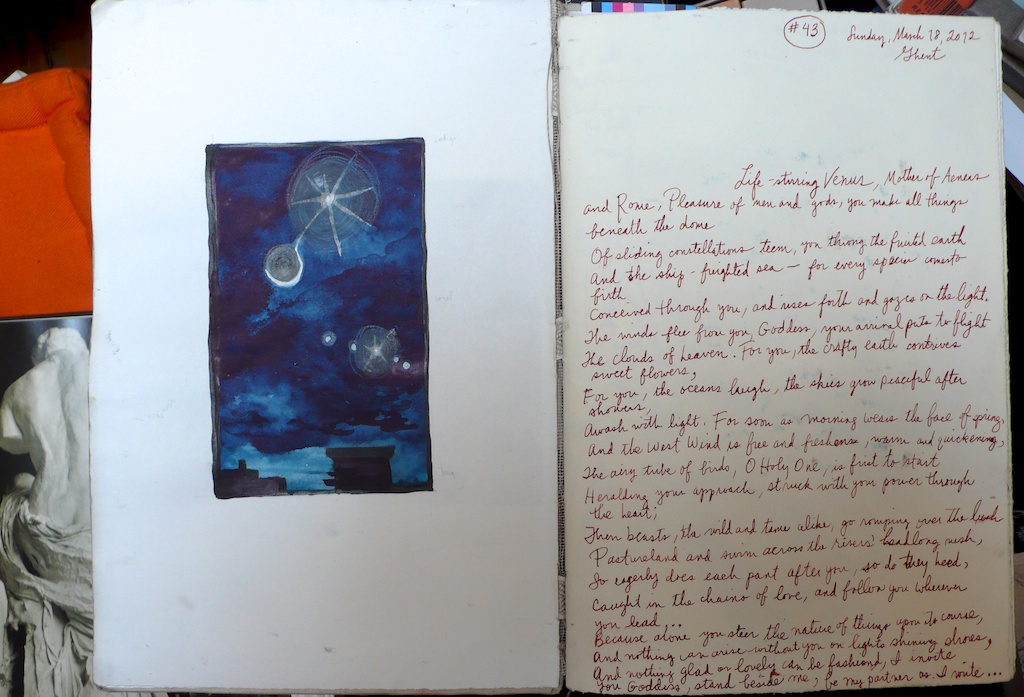 #43
Sunday, March 18, 2012
Ghent
Life-stirring Venus, Mother of Aeneas
and Rome, Pleasure of men and gods, you make all things
beneath the dome
Of sliding constellations teem, you throng the fruited earth
And the ship-freighted sea — for every species comes to
birth
Conceived through you, and rises forth and gazes on the light.
The winds flee from you, Goddess, your arrival puts to flight
The clouds of heaven. For you, the crafty earth contrives
sweet flowers,
For you, the oceans laugh, the skies grow peaceful after
showers,
Awash with light. For soon as morning wears the face of spring,
And the West Wind is free and freshens, warm and quickening,
The airy tribe of birds, O Holy One, is first to start
Heralding your approach, struck with your power through
the heart;
Then beasts, the wild and tame alike, go romping over the lush
Pastureland and swim across the rivers' headlong rush,
So eagerly does each pant after you, so do they heed,
Caught in the chains of love, and follow you wherever
you lead...
Because alone you steer the nature of things upon its course,
And nothing can arise without you on light's shining shores,
And nothing glad or lovely can be fashioned, I invite
You Goddess, stand beside me, be my partner as I write...